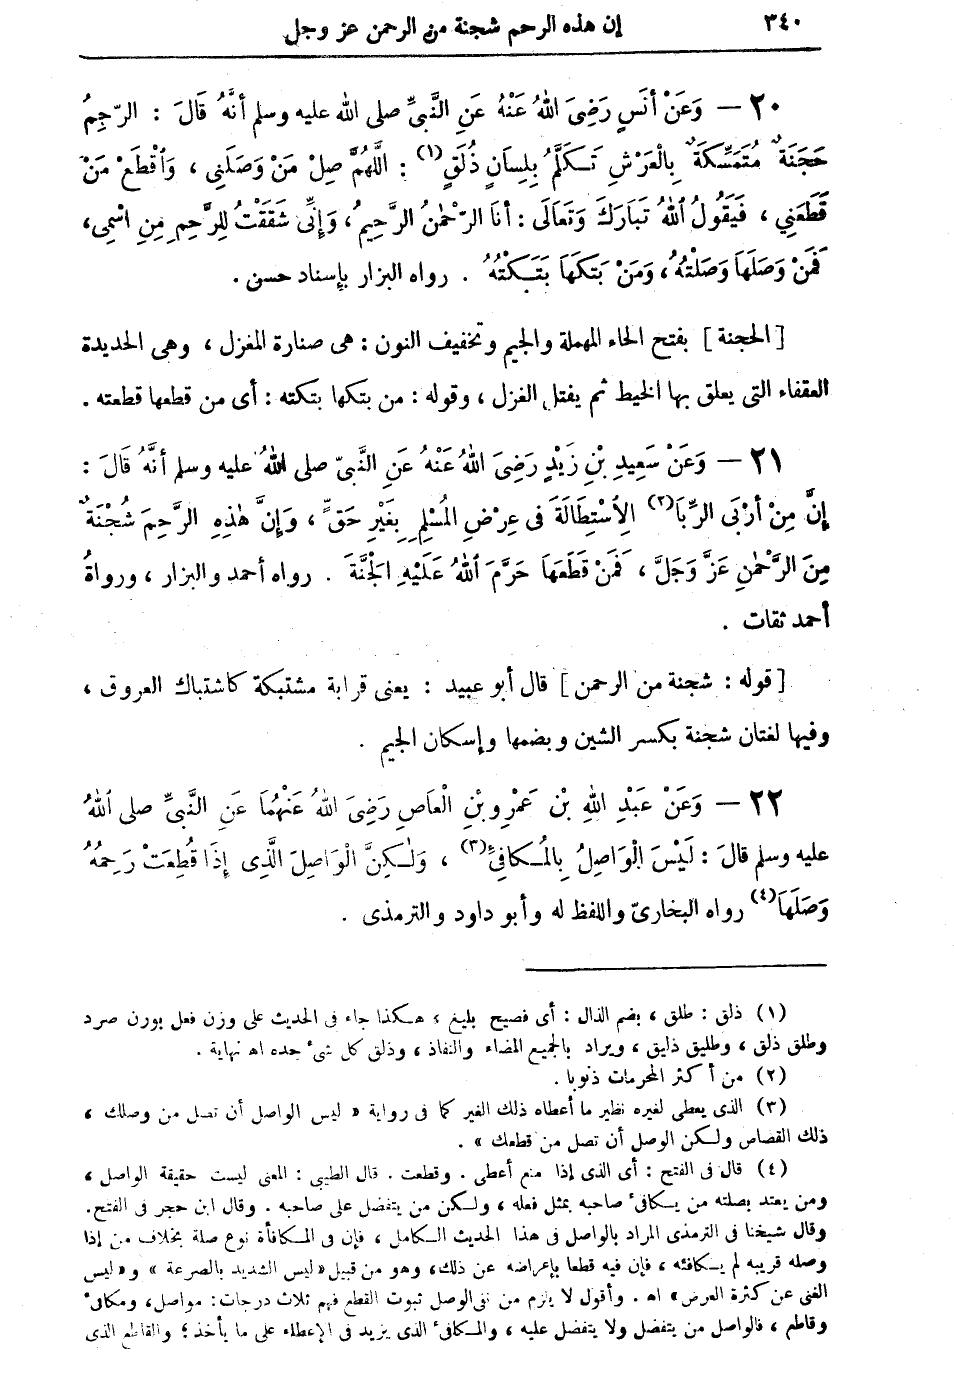 ٣٤٠ إن هذه الرحم شجنة من الرحمن عز وجل
٢٠ – وَعَنْ أَنَسٍ رَضِىَ اللهُ عَنْهُ عَنِ النَّبِىِّ صلى الله عليه وسلم أَنَّهُ قَالَ : الرَّحِمُ
حَجَنَةٌ مُتَمَسِّكَةٌ بِالْعَرْشِ تَكَلَّمُ بِلِسَانٍ ذُلَقٍ(١) : اللَّهُمَّ صِلْ مَنْ وَصَلَنِى ، وَاقْطَعْ مَنْ
قَطَعَنِي ، فَيَقُولُ اللهُ تَبَارَكَ وَتَعَالَى : أَنَا الرَّحْمٰنُ الرَّحِيمُ ، وَإِنِّى شَقَقْتُ لِلرَّحِمِ مِنِ اسْمِى ،
فَمَنْ وَصَلَهَا وَصَلْتُهُ ، وَمَنْ بَتَكَهَا بَتَكْتُهُ . رواه البزار بإسناد حسن .
[الحجنة] بفتح الحاء المهملة والجيم وتخفيف النون : هى صنارة المغزل ، وهى الحديدة
العقفاء التى يعلق بها الخيط ثم يفتل الغزل ، وقوله : من بتكها بتكته : أى من قطعها قطعته .
٢١ – وَعَنْ سَعِيدِ بْنِ زَيْدٍ رَضِىَ اللهُ عَنْهُ عَنِ النَّبِىِّ صلى اللهُ عليه وسلم أَنَّهُ قَالَ :
إِنَّ مِنْ أَرْبَى الرِّبَا(٢) الِاسْتِطَالَةَ فى عِرْضِ المُسْلِمِ بِغَيْرِ حَقٍّ ، وَإِنَّ هٰذِهِ الرَّحِمَ شُجْنَةٌ
مِنَ الرَّحْمٰنِ عَزَّ وَجَلَّ ، فَمَنْ قَطَعَهَا حَرَّمَ اللهُ عَلَيْهِ الْجَنَّةَ . رواه أحمد والبزار ، ورواةُ
أحمد ثقات .
[قوله : شجنة من الرحمن] قال أبو عبيد : يعنى قرابة مشتبكة كاشتباك العروق ،
وفيها لغتان شجنة بكسر الشين وبضمها وإسكان الجيم .
٢٢ – وَعَنْ عَبْدِ اللهِ بْنِ عَمْرِو بْنِ الْعَاصِ رَضِىَ اللهُ عَنْهُمَا عَنِ النَّبِىِّ صلى اللهُ
عليه وسلم قالَ : لَيْسَ الْوَاصِلُ بِالْمُكَافِئِ(٣) ، وَلٰكِنَّ الْوَاصِلَ الَّذِى إِذَا قُطِعَتْ رَحِمُهُ
وَصَلَهَا(٤) رواه البخارىّ واللفظ له وأبو داود والترمذى .
(١) ذلق : طلق ، بضم الذال : أى فصيح بليغ ، هكذا جاء فى الحديث على وزن فعل بوزن صرد
وطلق ذلق ، وطليق ذليق ، ويراد بالجميع المضاء والنفاذ ، وذلق كل شىء حده اه نهاية .
(٢) من أكثر المحرمات ذنوبا .
(٣) الذى يعطى لغيره نظير ما أعطاه ذلك الغير كما فى رواية « ليس الواصل أن تصل من وصلك ،
ذلك القصاص ولكن الوصل أن تصل من قطعك » .
(٤) قال فى الفتح : أى الذى إذا منع أعطى . وقطعت . قال الطيبى : المعنى ليست حقيقة الواصل ،
ومن يعتد بصلته من يكافىء صاحبه بمثل فعله ، ولكن من يتفضل على صاحبه . وقال ابن حجر فى الفتح.
وقال شيخنا فى الترمذى المراد بالواصل فى هذا الحديث الكامل ، فإن فى المكافأة نوع صلة بخلاف من إذا
وصله قريبه لم يكافئه ، فإن فيه قطعا بإعراضه عن ذلك، وهو من قبيل «ليس الشديد بالصرعة » و«ليس
الغنى عن كثرة العرض» اه . وأقول لا يلزم من نفى الوصل ثبوت القطع فهم ثلاث درجات: مواصل، ومكافىء
وقاطع ، فالواصل من يتفضل ولا يتفضل عليه ، والمكافىء الذى يزيد فى الإعطاء على ما يأخذ ؛ والقاطع الذى